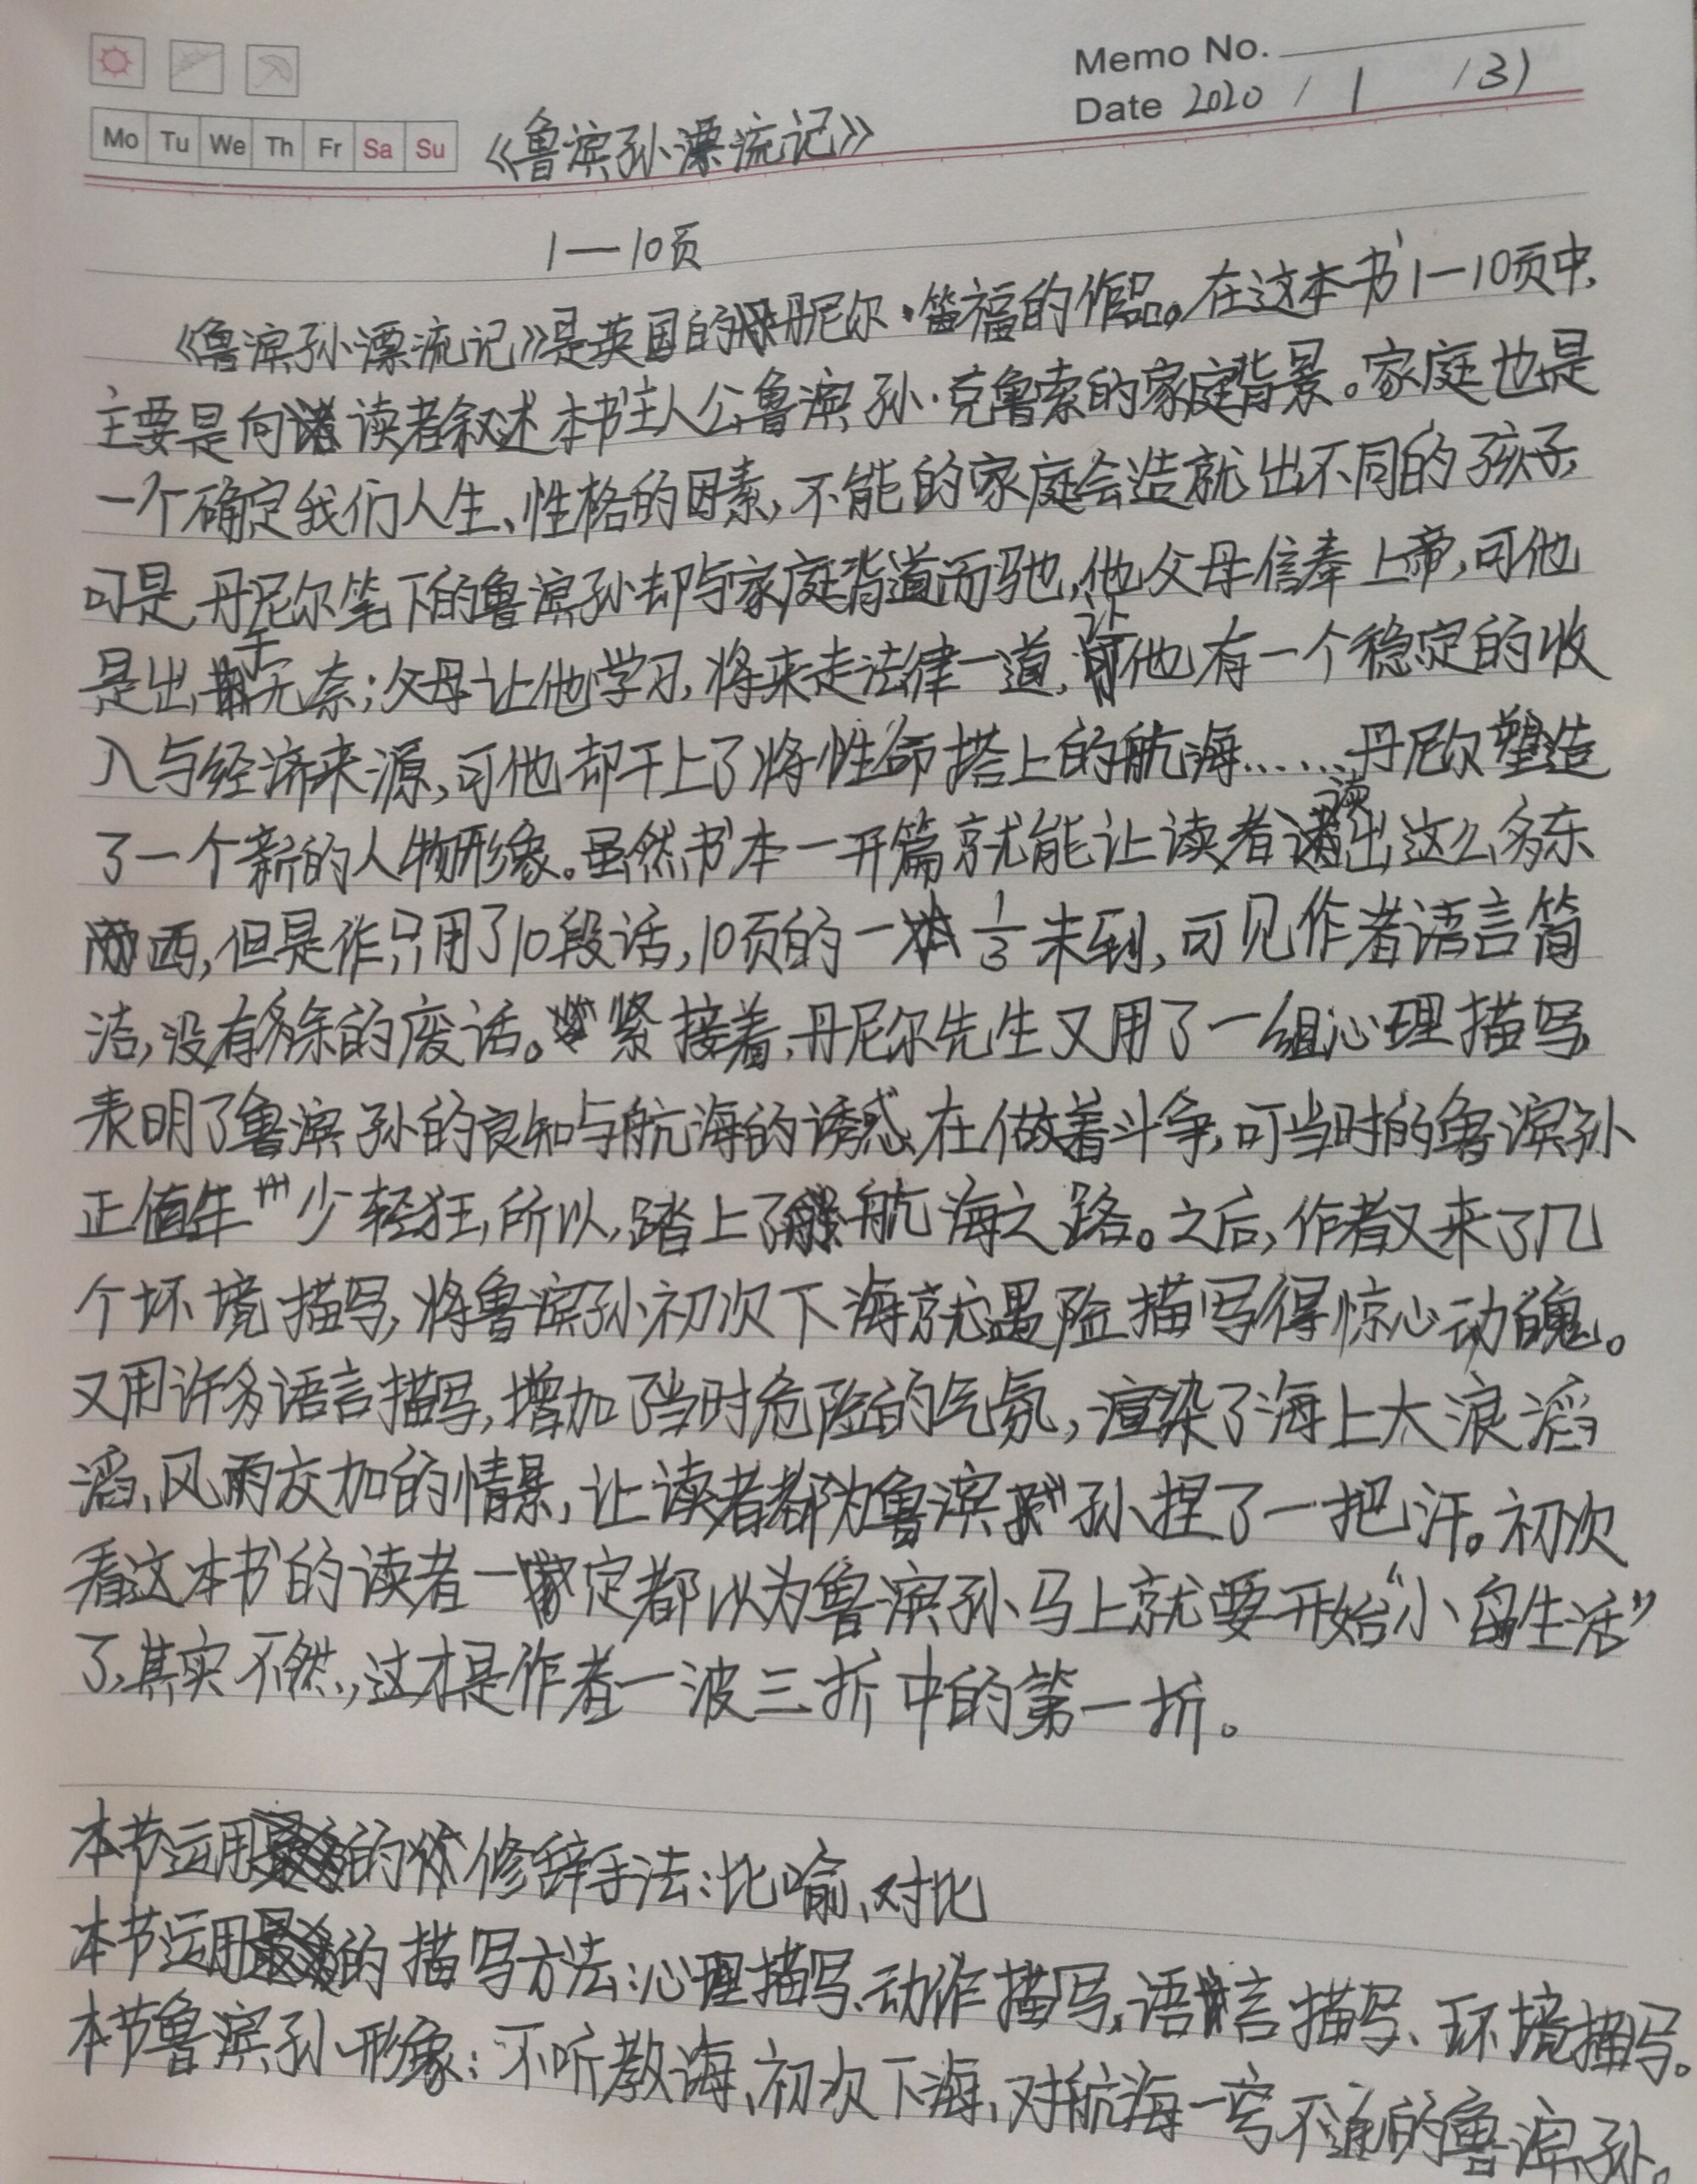 Memo No.
Date 2020 / 1 / 31
Mo Tu We Th Fr Sa Su
《鲁滨孙漂流记》
1—10页
《鲁滨孙漂流记》是英国的丹尼尔·笛福的作品。在这本书1—10页中,
主要是向读者叙述本书主人公鲁滨孙·克鲁索的家庭背景。家庭也是
一个确定我们人生、性格的因素,不能的家庭会造就出不同的孩子,
可是,丹尼尔笔下的鲁滨孙却与家庭背道而驰,他父母信奉上帝,可他
是出于无奈;父母让他学习,将来走法律一道,让他有一个稳定的收
入与经济来源,可他却干上了将性命搭上的航海……丹尼尔塑造
了一个新的人物形象。虽然书本一开篇就能让读者读出这么多东
西,但是作只用了10段话,10页的一1/3未到,可见作者语言简
洁,没有多余的废话。紧接着,丹尼尔先生又用了一组心理描写,
表明了鲁滨孙的良知与航海的诱惑在做着斗争,可当时的鲁滨孙
正值年少轻狂,所以,踏上了航海之路。之后,作者又来了几
个环境描写,将鲁滨孙初次下海就遇险描写得惊心动魄。
又用许多语言描写,增加了当时危险的气氛,渲染了海上大浪滔
滔、风雨交加的情景,让读者都为鲁滨孙捏了一把汗。初次
看这本书的读者一定都以为鲁滨孙马上就要开始“小岛生活”
了,其实不然,这才是作者一波三折中的第一折。
本节运用的修辞手法:比喻、对比
本节运用的描写方法:心理描写、动作描写、语言描写、环境描写。
本节鲁滨孙形象:不听教诲、初次下海、对航海一窍不通的鲁滨孙。